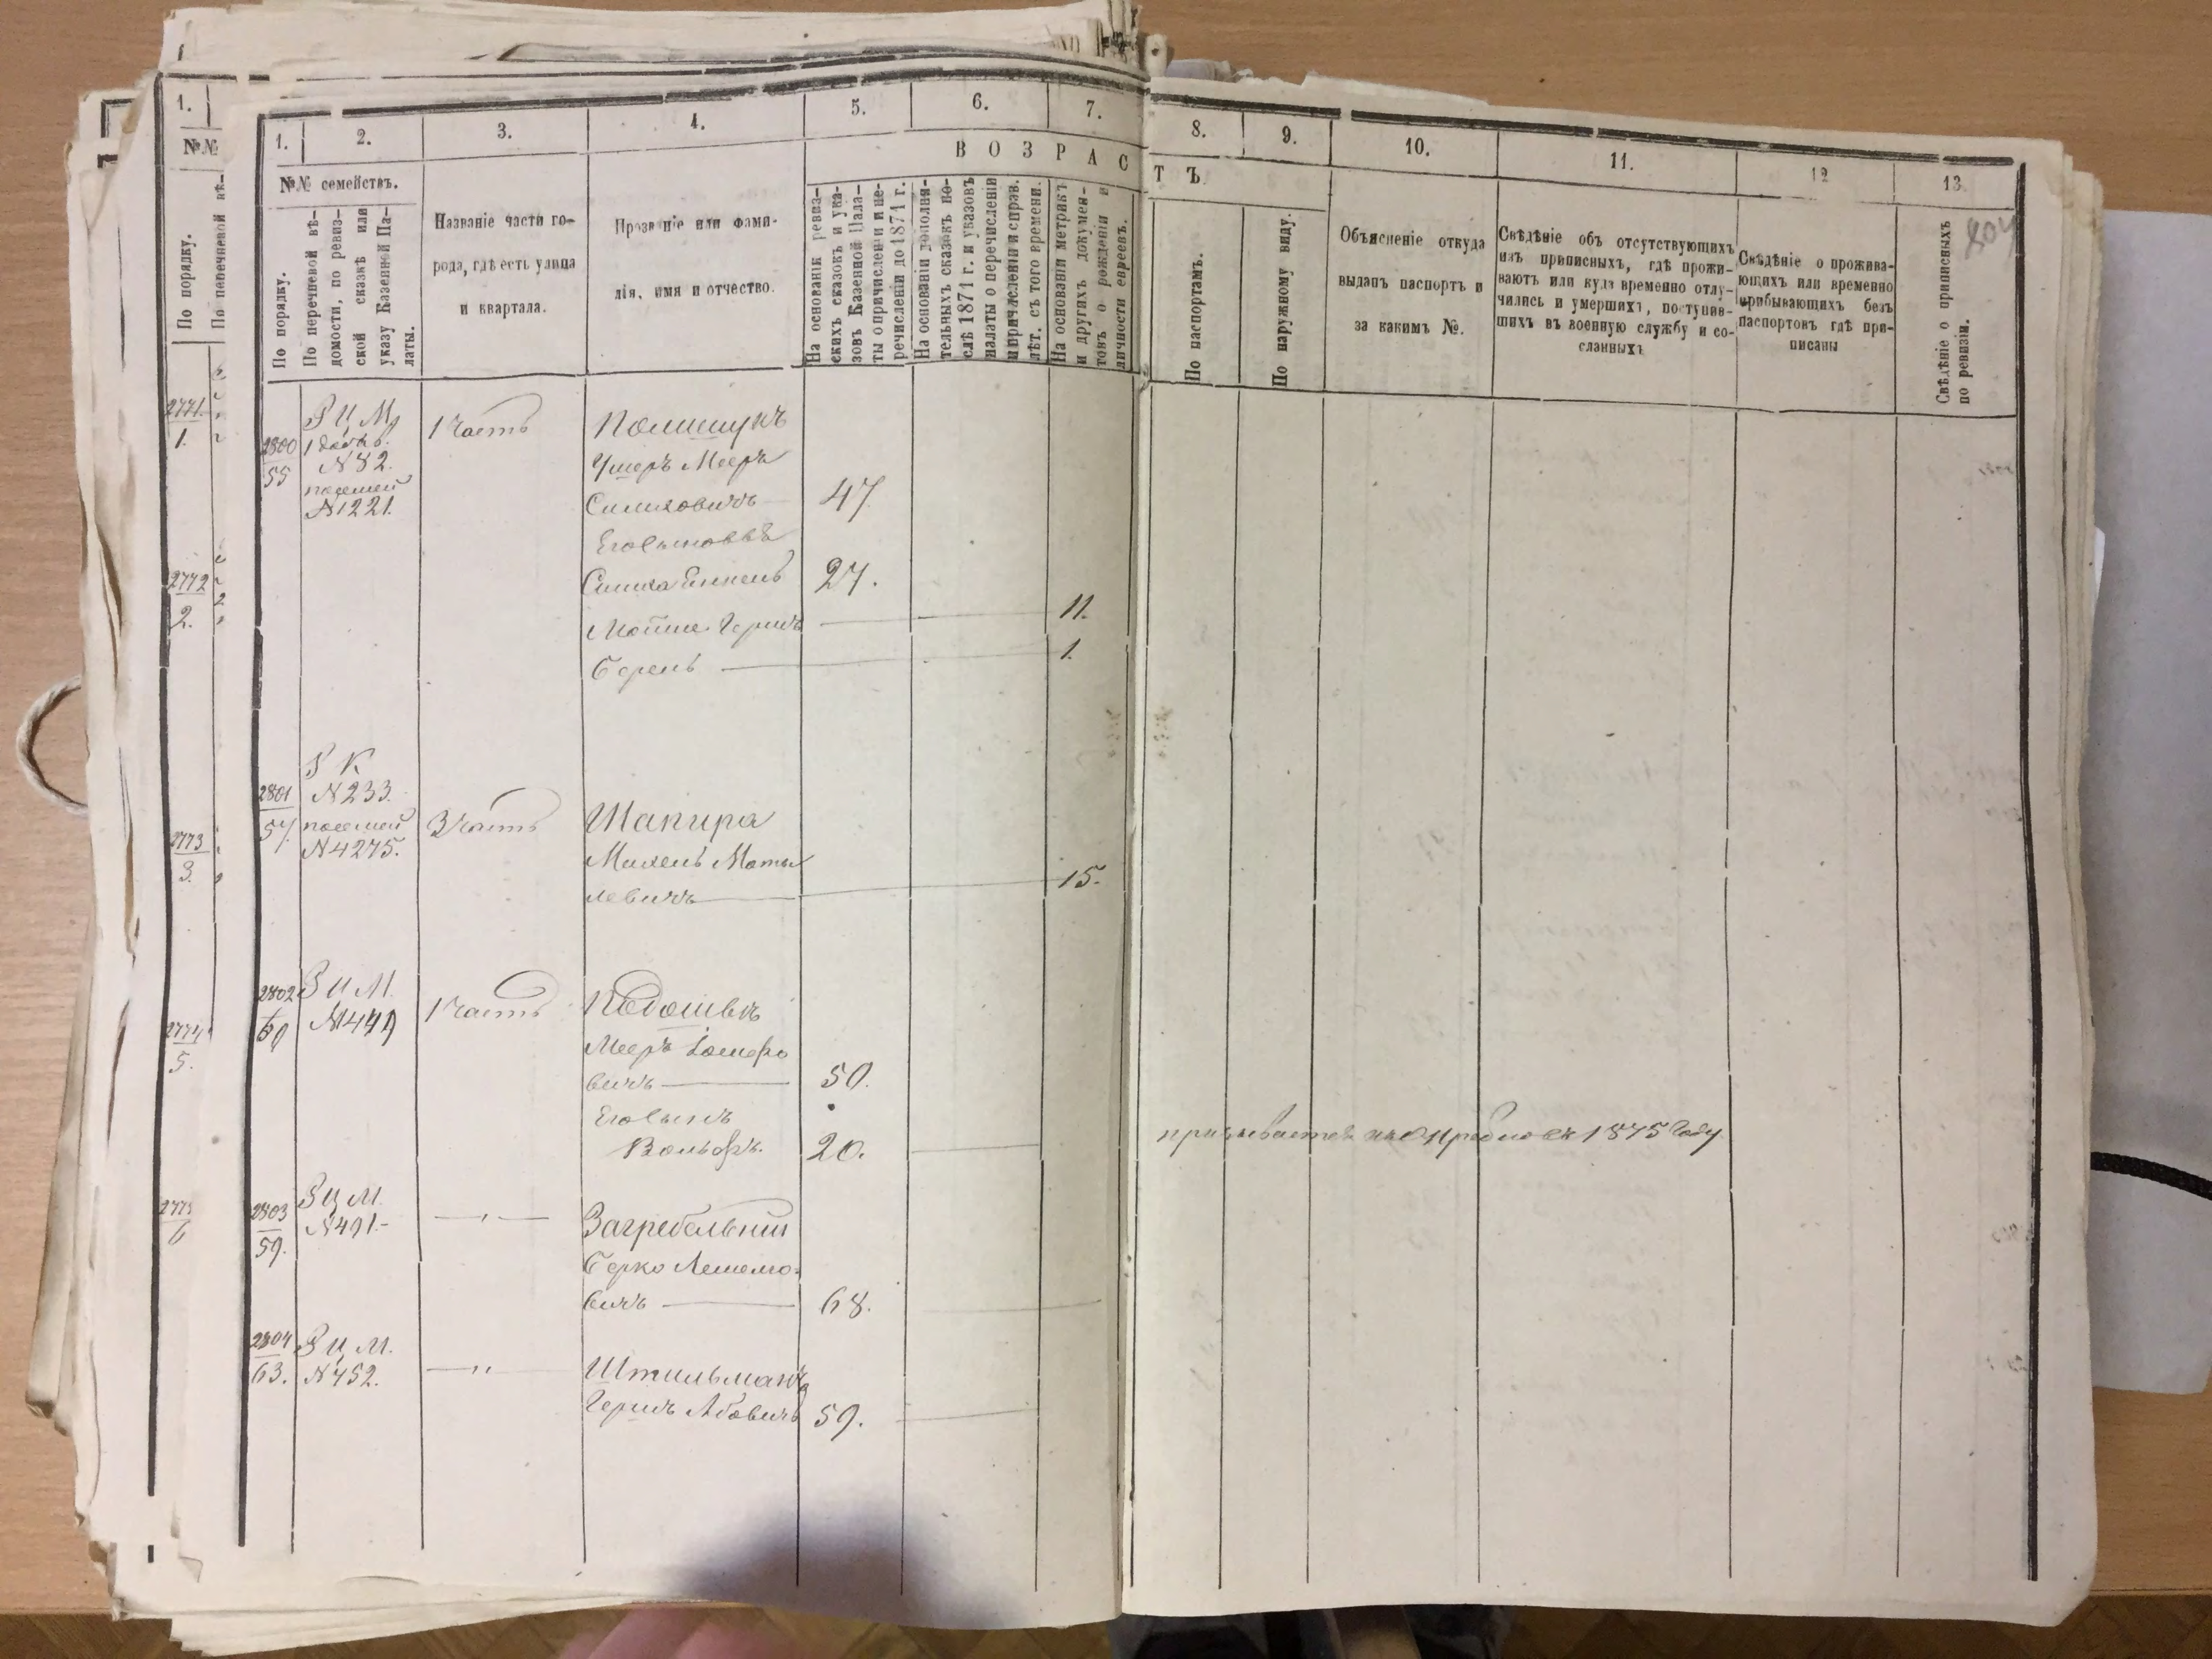 1.
№№
По порядку.
По перечневой вѣ-
2771.
1.
2772
2.
2773
3.
2774
5.
6
1.
2.
3.
4.
5.
6.
7.
8.
9.
10.
11.
12
13.
804
№№ семействъ.
ВОЗРАС
ТЪ.
По порядку.
По перечневой вѣ-
домости, по ревиз-
ской сказкѣ или
указу Казенной Па-
латы.
Названіе части го-
рода, гдѣ есть улица
и квартала.
Прозваніе или фами-
лія, имя и отчество.
На основаніи ревиз-
скихъ сказокъ и ука-
зовъ Казенной Пала-
ты о причисленіи и пе-
речисленіи до 1871 г.
На основаніи дополни-
тельныхъ сказокъ по-
слѣ 1871 г. и указовъ
палаты о перечисленіи
и причисленіи и справ.
лѣт. съ того времени.
На основаніи метрикъ
и другихъ докумен-
товъ о рожденіи и
личности евреевъ.
По паспортамъ.
По наружному виду.
Объясненіе откуда
выданъ паспортъ и
за какимъ №.
Свѣдѣніе объ отсутствующихъ
изъ приписныхъ, гдѣ прожи-
ваютъ или куда временно отлу-
чились и умершихъ, поступив-
шихъ въ военную службу и со-
сланныхъ
Свѣдѣніе о прожива-
ющихъ или временно
прибывающихъ безъ
паспортовъ гдѣ при-
писаны
Свѣдѣніе о приписныхъ
по ревизіи.
2800
55
N 82.
посемей
N 1221.
1 часть
Полищукъ
Ушеръ Мееръ
Симховичъ 47
Его сыновья
Симха 27.
Мойше Гершъ 11.
Берель 1.
2801
57.
N 233.
посемей
N 4275.
3 часть
Шапира
Михель Моты
левичъ 15.
2802
N 449
1 часть
Подошвъ
Мееръ
вичъ 50.
Его сынъ
Вольфъ. 20.
призывается 1875 году
2803
59.
N 491.
— " —
Загребельный
Берко
вичъ 68.
2804
63.
N 452.
— " —
Штильманъ
Гершъ Абовичъ 59.